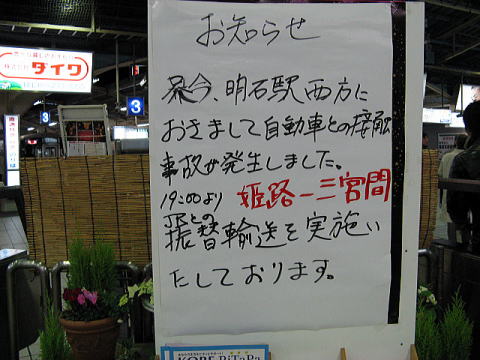 お知らせ
只今、明石駅西方に
おきまして自動車との接触
事故が発生しました。
19:00より 姫路－三宮間
JRとの
振替輸送を実施い
たしております。
株式会社ダイワ
3
KOBE PiTaPa